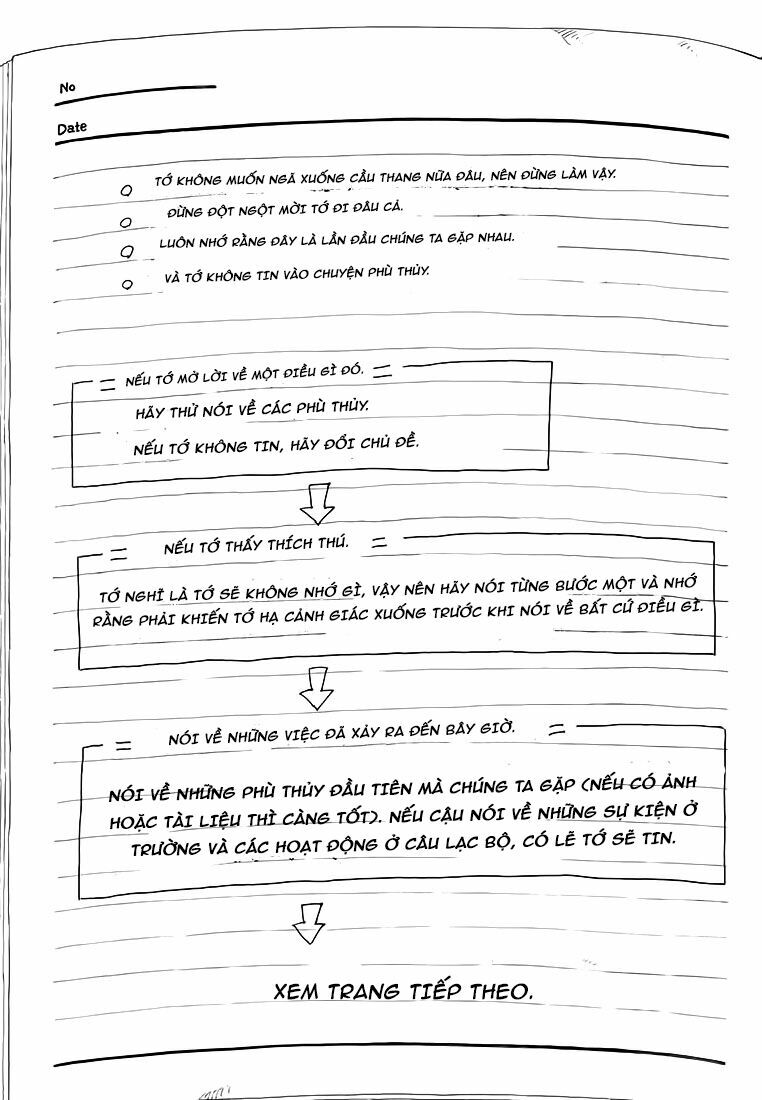 No
Date
TỚ KHÔNG MUỐN NGÃ XUỐNG CẦU THANG NỮA ĐÂU, NÊN ĐỪNG LÀM VẬY.
ĐỪNG ĐỘT NGỘT MỜI TỚ ĐI ĐÂU CẢ.
LUÔN NHỚ RẰNG ĐÂY LÀ LẦN ĐẦU CHÚNG TA GẶP NHAU.
VÀ TỚ KHÔNG TIN VÀO CHUYỆN PHÙ THỦY.
NẾU TỚ MỞ LỜI VỀ MỘT ĐIỀU GÌ ĐÓ.
HÃY THỬ NÓI VỀ CÁC PHÙ THỦY.
NẾU TỚ KHÔNG TIN, HÃY ĐỔI CHỦ ĐỀ.
NẾU TỚ THẤY THÍCH THÚ.
TỚ NGHĨ LÀ TỚ SẼ KHÔNG NHỚ GÌ, VẬY NÊN HÃY NÓI TỪNG BƯỚC MỘT VÀ NHỚ
RẰNG PHẢI KHIẾN TỚ HẠ CẢNH GIÁC XUỐNG TRƯỚC KHI NÓI VỀ BẤT CỨ ĐIỀU GÌ.
NÓI VỀ NHỮNG VIỆC ĐÃ XẢY RA ĐẾN BÂY GIỜ.
NÓI VỀ NHỮNG PHÙ THỦY ĐẦU TIÊN MÀ CHÚNG TA GẶP (NẾU CÓ ẢNH
HOẶC TÀI LIỆU THÌ CÀNG TỐT). NẾU CẬU NÓI VỀ NHỮNG SỰ KIỆN Ở
TRƯỜNG VÀ CÁC HOẠT ĐỘNG Ở CÂU LẠC BỘ, CÓ LẼ TỚ SẼ TIN.
XEM TRANG TIẾP THEO.